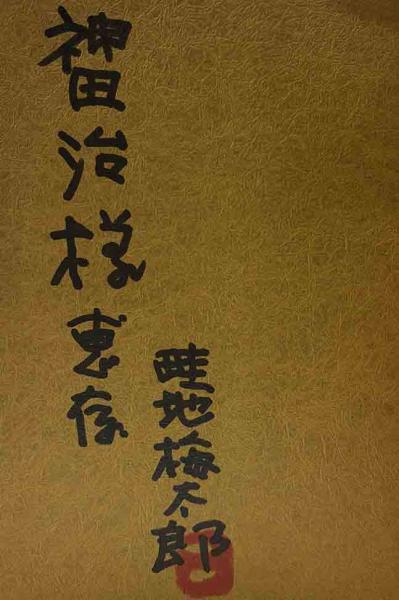 神田治様恵存
畦地梅太郎